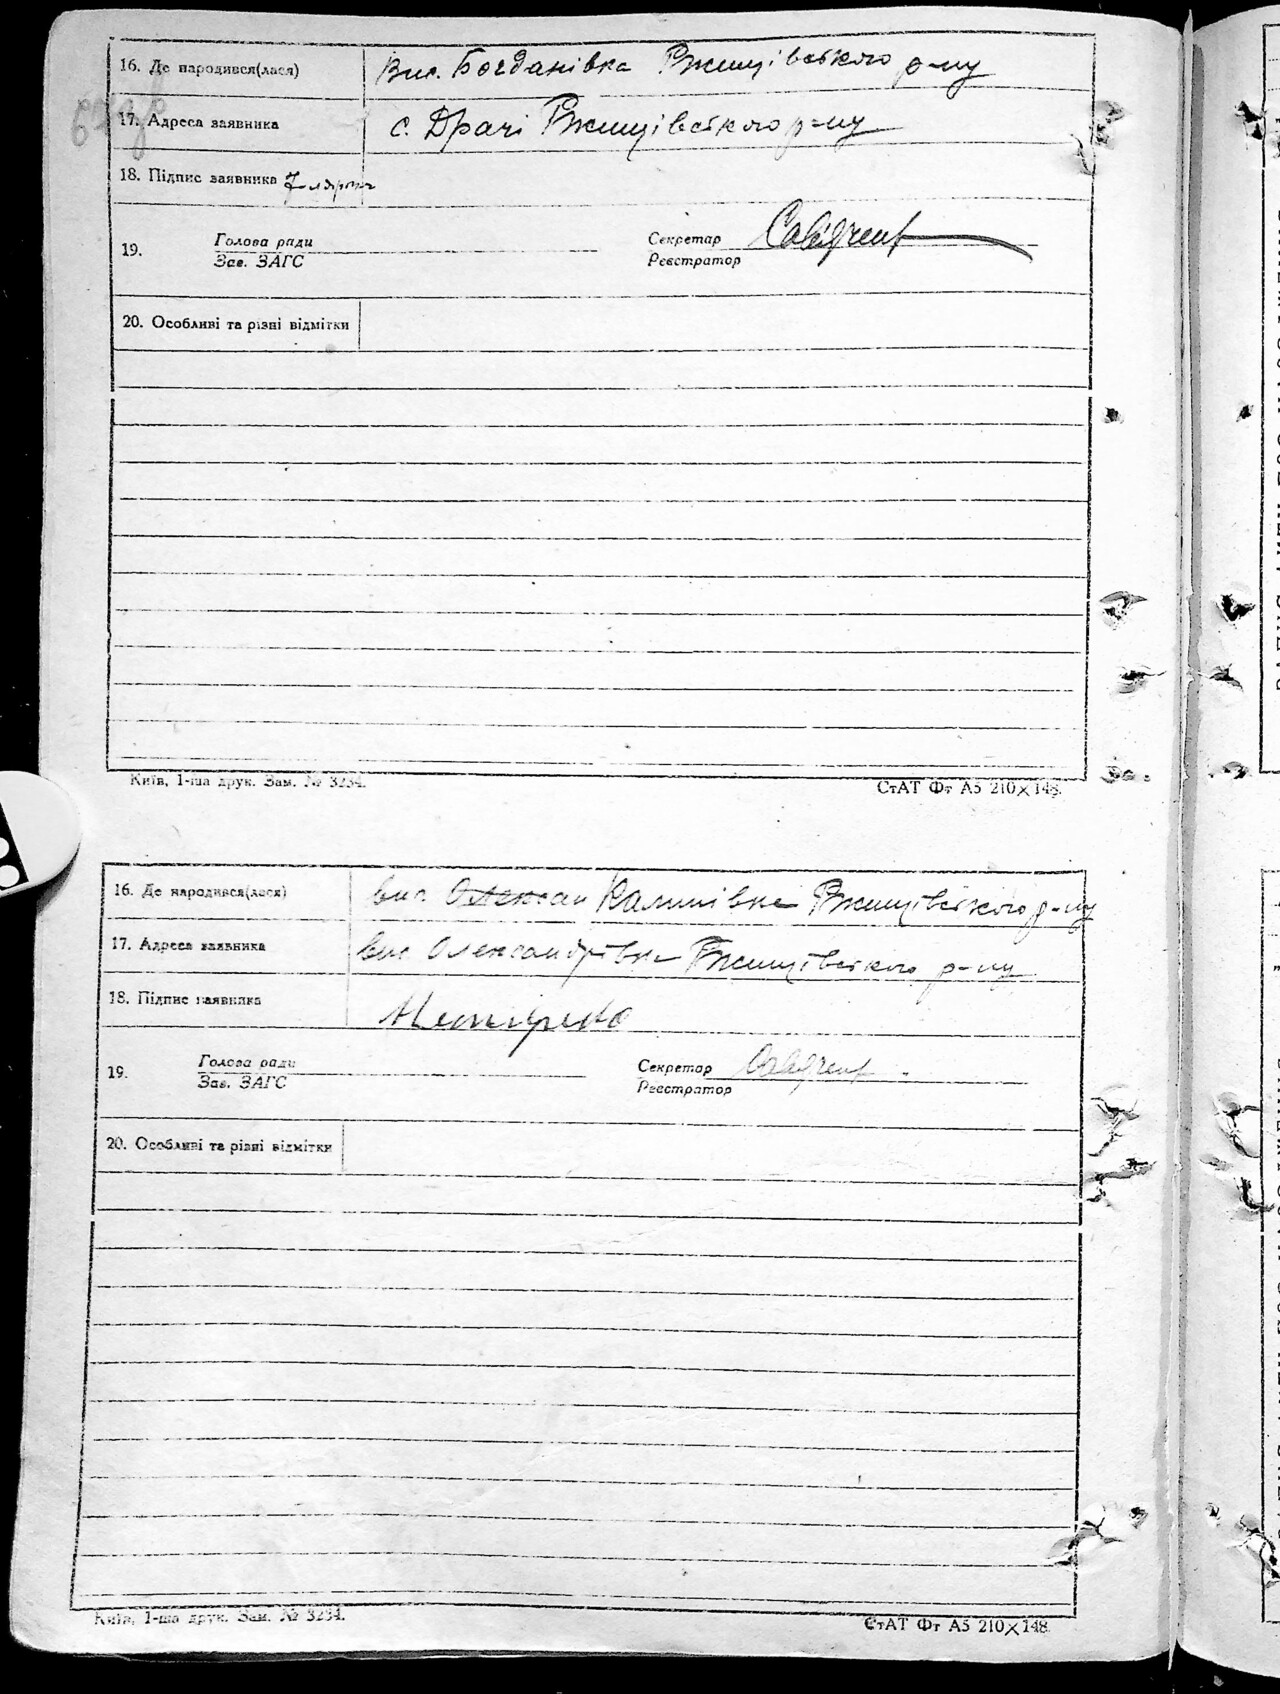 16. Де народився(лася) Вис. Богданівка Ржищівського р-ну
17. Адреса заявника с. Драчі Ржищівського р-ну
18. Підпис заявника
Голова ради Секретар
19. Зав. ЗАГС Реєстратор
20. Особливі та різні відмітки
Київ, 1-ша друк. Зам. № 3234. СтАТ Фт А5 210×148.
16. Де народився(лася) вис. Олексан Калинівка Ржищівського р-ну
17. Адреса заявника вис Олександрівка Ржищівського р-ну
18. Підпис заявника
Голова ради Секретар
19. Зав. ЗАГС Реєстратор
20. Особливі та різні відмітки
Київ, 1-ша друк. Зам. № 3234. СтАТ Фт А5 210×148.